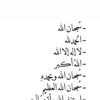 - سبحان الله
- الحمد لله
- لا إله إلا الله
- الله أكبر
- سبحان الله وبحمده
- سبحان الله العظيم